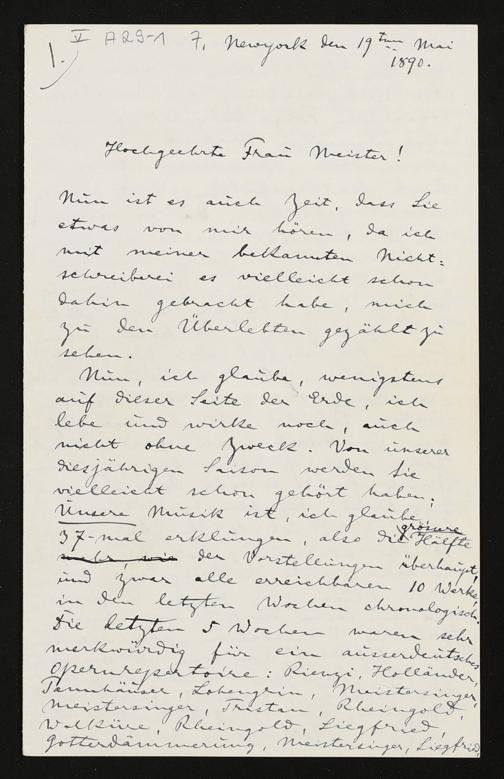 V A29-1 7. Newyork den 19ten Mai
1. 1890.
Hochgeehrte Frau Meister!
Nun ist es auch Zeit, dass Sie
etwas von mir hören, da ich
mit meiner bekannten Nicht=
schreiberei es vielleicht schon
dahin gebracht habe, mich
zu den Überlebten gezählt zu
sehen.
Nun, ich glaube, wenigstens
auf dieser Seite der Erde, ich
lebe und wirke noch, auch
nicht ohne Zweck. Von unserer
diesjährigen Saison werden Sie
vielleicht schon gehört haben;
Unsere Musik ist, ich glaube,
grössre
37-mal erklungen, also die Hälfte
mehr, wie der Vorstellungen überhaupt,
und zwar alle erreichbaren 10 Werke,
in den letzten Wochen chronologisch.
Die letzten 5 Wochen waren sehr
merkwürdig für ein ausserdeutsches
Opernrepertoire: Rienzi, Holländer,
Tannhäuser, Lohengrin, Meistersinger,
Meistersinger, Tristan, Rheingold,
Walküre, Rheingold, Siegfried,
Götterdämmerung, Meistersinger, Siegfried,